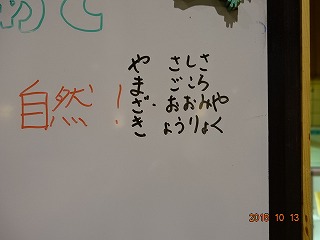 自然!
やさしさ
まごころ
ざおおみや
きょうりょく
2018 10 13